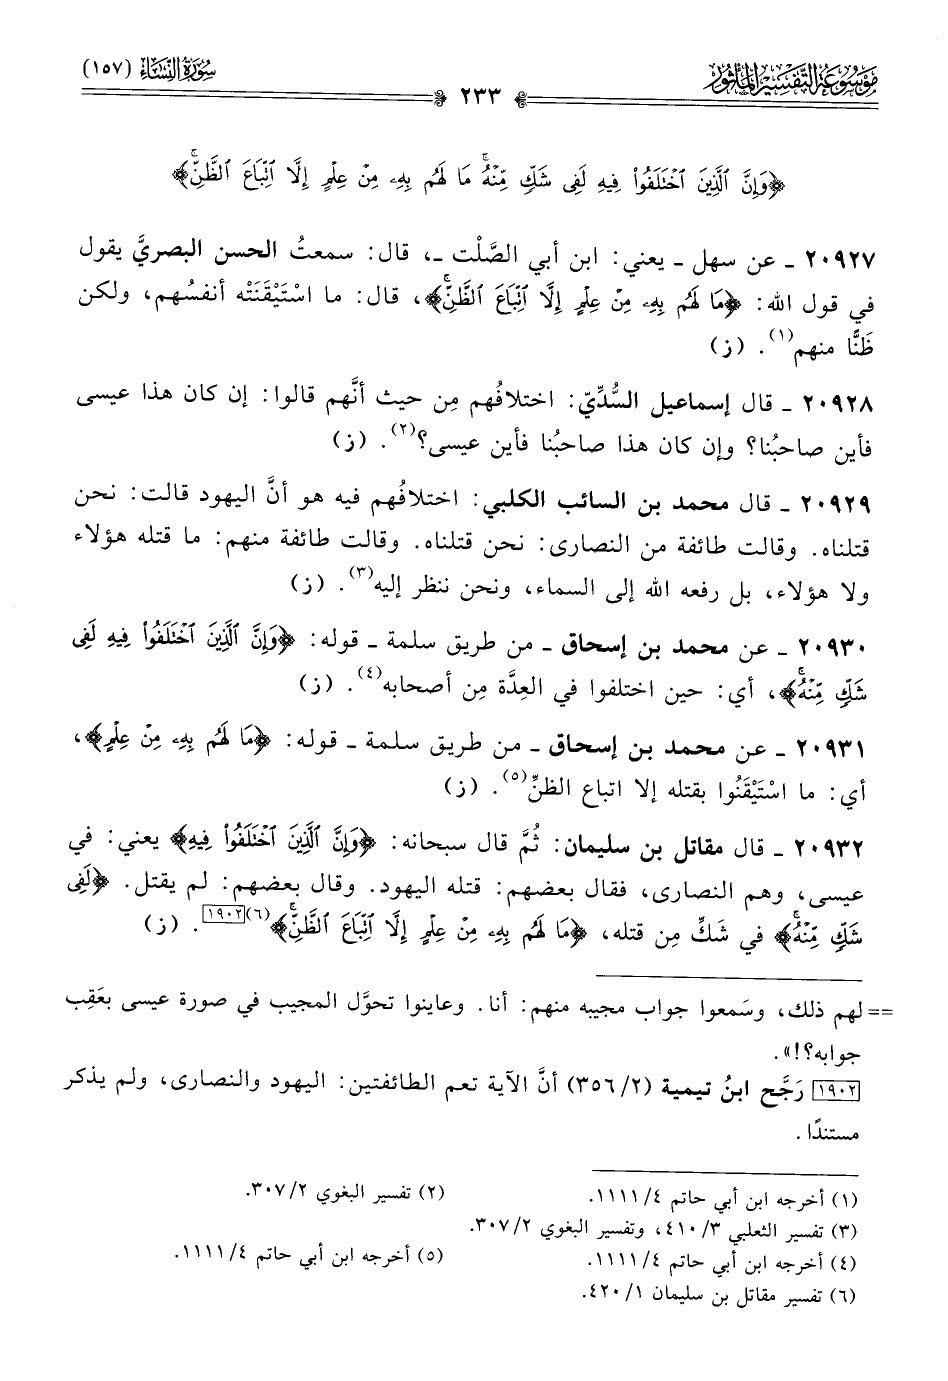 موسوعة التفسير المأثور
٢٣٣
سورة النساء (١٥٧)
﴿وَإِنَّ ٱلَّذِينَ ٱخْتَلَفُوا۟ فِيهِ لَفِى شَكٍّ مِّنْهُ ۚ مَا لَهُم بِهِۦ مِنْ عِلْمٍ إِلَّا ٱتِّبَاعَ ٱلظَّنِّ ۚ﴾
٢٠٩٢٧ ـ عن سهل ـ يعني: ابن أبي الصَّلْت ـ، قال: سمعتُ الحسن البصريَّ يقول
في قول الله: ﴿مَا لَهُم بِهِۦ مِنْ عِلْمٍ إِلَّا ٱتِّبَاعَ ٱلظَّنِّ ۚ﴾، قال: ما اسْتَيْقَنَتْه أنفسُهم، ولكن
ظَنًّا منهم(١). (ز)
٢٠٩٢٨ ـ قال إسماعيل السُّدِّيّ: اختلافُهم مِن حيث أنَّهم قالوا: إن كان هذا عيسى
فأين صاحبُنا؟ وإن كان هذا صاحبُنا فأين عيسى؟(٢). (ز)
٢٠٩٢٩ ـ قال محمد بن السائب الكلبي: اختلافُهم فيه هو أنَّ اليهود قالت: نحن
قتلناه. وقالت طائفة من النصارى: نحن قتلناه. وقالت طائفة منهم: ما قتله هؤلاء
ولا هؤلاء، بل رفعه الله إلى السماء، ونحن ننظر إليه(٣). (ز)
٢٠٩٣٠ ـ عن محمد بن إسحاق ـ من طريق سلمة ـ قوله: ﴿وَإِنَّ ٱلَّذِينَ ٱخْتَلَفُوا۟ فِيهِ لَفِى
شَكٍّ مِّنْهُ ۚ﴾، أي: حين اختلفوا في العِدَّة مِن أصحابه(٤). (ز)
٢٠٩٣١ ـ عن محمد بن إسحاق ـ من طريق سلمة ـ قوله: ﴿مَا لَهُم بِهِۦ مِنْ عِلْمٍ﴾،
أي: ما اسْتَيْقَنُوا بقتله إلا اتباع الظنِّ(٥). (ز)
٢٠٩٣٢ ـ قال مقاتل بن سليمان: ثُمَّ قال سبحانه: ﴿وَإِنَّ ٱلَّذِينَ ٱخْتَلَفُوا۟ فِيهِ﴾ يعني: في
عيسى، وهم النصارى، فقال بعضهم: قتله اليهود. وقال بعضهم: لم يقتل. ﴿لَفِى
شَكٍّ مِّنْهُ ۚ﴾ في شَكٍّ مِن قتله، ﴿مَا لَهُم بِهِۦ مِنْ عِلْمٍ إِلَّا ٱتِّبَاعَ ٱلظَّنِّ ۚ﴾(٦) ١٩٠٢. (ز)
== لهم ذلك، وسَمعوا جواب مجيبه منهم: أنا. وعاينوا تحوَّل المجيب في صورة عيسى بعَقِب
جوابه؟!».
١٩٠٢ رَجَّح ابنُ تيمية (٢/ ٣٥٦) أنَّ الآية تعم الطائفتين: اليهود والنصارى، ولم يذكر
مستندًا.
(١) أخرجه ابن أبي حاتم ٤/ ١١١١.
(٢) تفسير البغوي ٢/ ٣٠٧.
(٣) تفسير الثعلبي ٣/ ٤١٠، وتفسير البغوي ٢/ ٣٠٧.
(٤) أخرجه ابن أبي حاتم ٤/ ١١١١.
(٥) أخرجه ابن أبي حاتم ٤/ ١١١١.
(٦) تفسير مقاتل بن سليمان ١/ ٤٢٠.